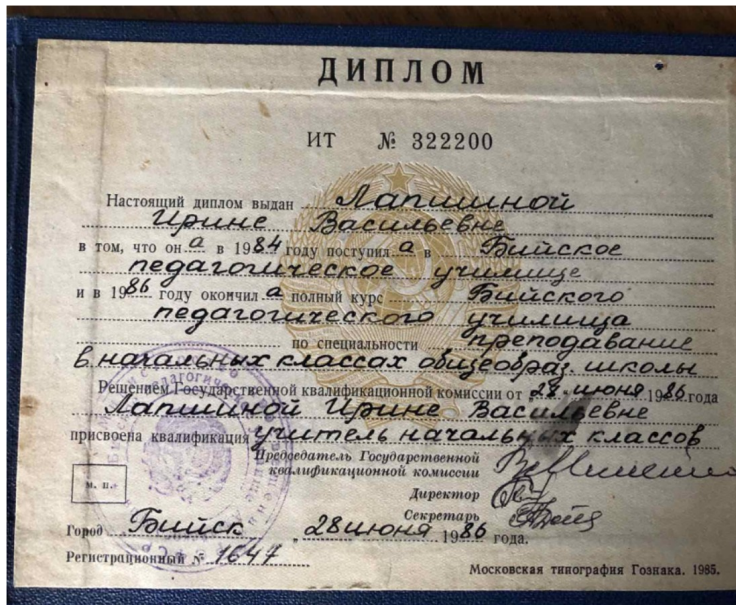 ДИПЛОМ
ИТ № 322200
Настоящий диплом выдан Лапшиной
Ирине Васильевне
в том, что он а в 1984 году поступил а в Бийское
педагогическое училище
и в 1986 году окончил а полный курс Бийского
педагогического училища
по специальности преподавание
в начальных классах общеобраз. школы
Решением Государственной квалификационной комиссии от 28 июня 1986 года
Лапшиной Ирине Васильевне
присвоена квалификация учитель начальных классов
Председатель Государственной
квалификационной комиссии
М. П.
Директор
Секретарь
Город Бийск, 28 июня 1986 года.
Регистрационный № 1647
Московская типография Гознака. 1985.